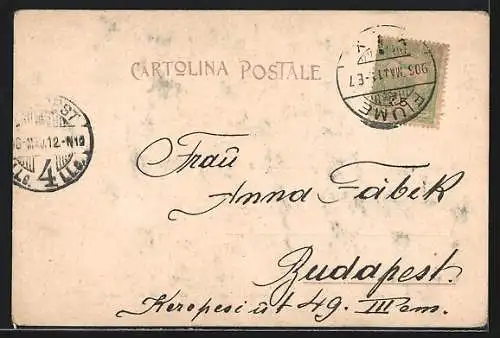 CARTOLINA POSTALE
FIUME
903 MAJ 11 E.7
EST
12-N10
4
Frau
Anna Fábik
Budapest.
Kerepesi út 49. III em.